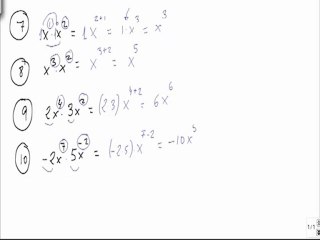 7 1x¹·x² = 1x²⁺¹ = 1x³ = x³
8 x³·x² = x³⁺² = x⁵
9 2x⁴·3x² = (2·3)x⁴⁺² = 6x⁶
10 -2x⁷·5x⁻² = (-2·5)x⁷⁻² = -10x⁵
1/1